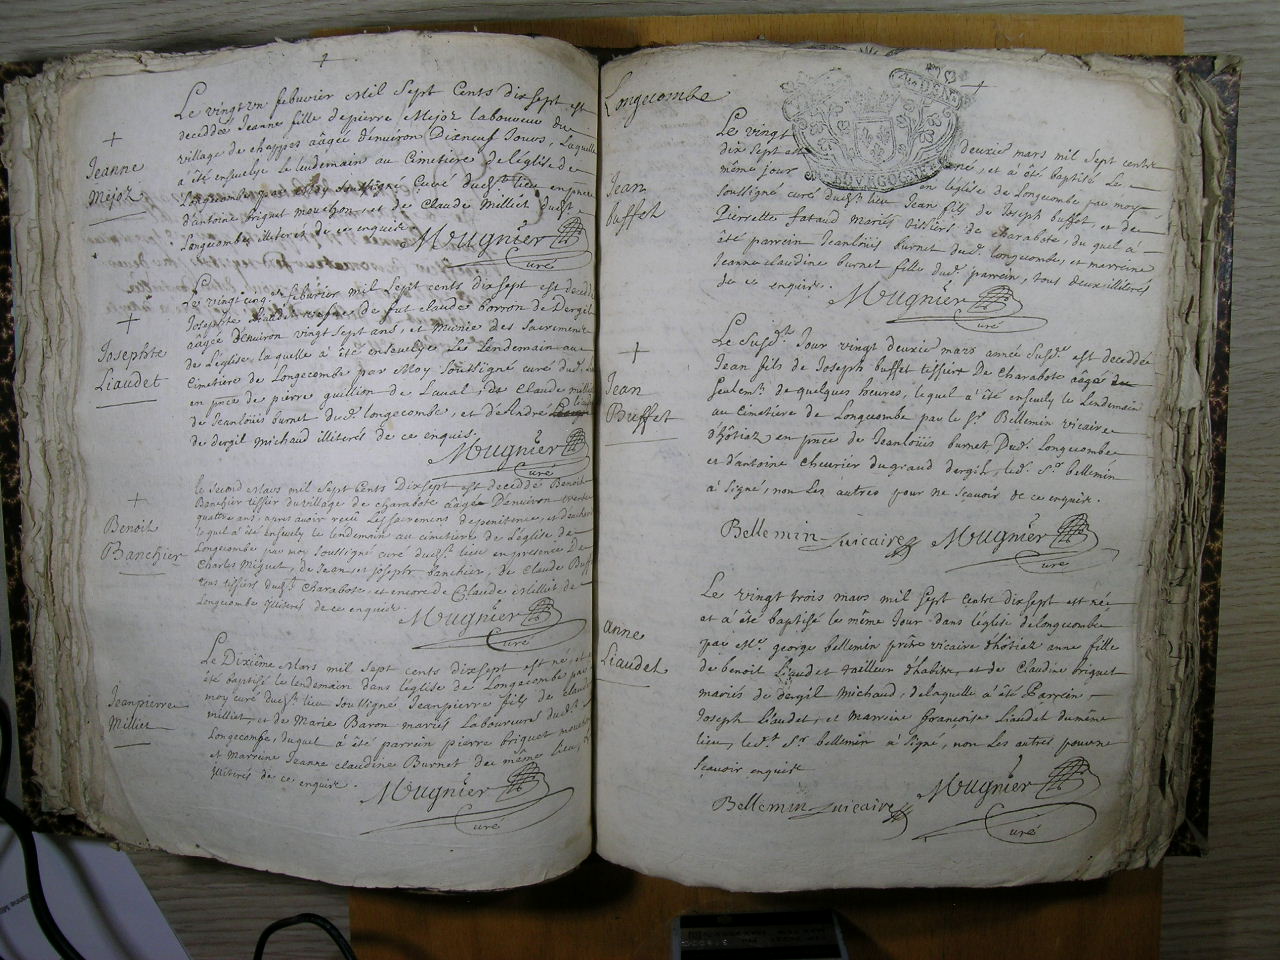 Jeanne
Mejoz
Le vingt un febvrier Mil Sept Cents dix sept est
deceddée Jeanne fille de pierre Mejoz laboureur du
village de chappes aâgée d'environ Dixneuf Jours, Laquelle
à été ensevelye le lendemain au Cimetiére de l'église de
Longecombe par moy soussigné Curé dud.t lieu en pnce
d'antoine briguet mouchon, et de Claude Milliet dud.t
Longecombe illiterés de ce enquis
Mugnier
curé
Josephte
Liaudet
Le vingt cinq febvrier mil Sept cents dix sept est deceddée
Josephte Liaudet vefve de fut claude borron de Dergil
aâgée d'environ vingt sept ans, et munie des Sacrements
de L'église, laquelle à été ensevelye Le Lendemain au
Cimetiére de Longecombe par Moy Soussigné curé dud. Lieu
en pnce de pierre guillion de Laval, de Claude milliet
de Jeanloüis burnet dud. longecombe, et d'Andre
de dergil michaud illiterés de ce enquis.
Mugnier
curé
Benoit
Banchier
le second Mars mil Sept Cents Dix sept est deceddé Benoit
Banchier tissier du village de charabote aâgé D'environ trente
quattre ans, apres avoir receü Les sacremens de penitence, et d'euchar
lequel à été ensevely le lendemain au cimetiére de L'église de
Longecombe par moy soussigné curé dud.t lieu en presence De
Charles Miguet, de Jean et joseph banchier, de Claude Buff
tous tissiers dud.t Charabote, et encore de Claude Milliet de
Longecombe Illiterés de ce enquis.
Mugnier
curé
Jeanpierre
Milliet
Le Dixiéme Mars mil sept cents dix sept est né, et à
été baptisé le lendemain dans l'église de Longecombe par
moy curé dud.t lieu soussigné Jeanpierre fils de claude
milliet, et de Marie Baron mariés Laboureurs dud.t
Longecombe, duquel à été parrein pierre briguet mouchon
et Marreine Jeanne claudine Burnet du même Lieu,
Illiterés de ce enquis.
Mugnier
curé
Longecombe
BOURGOGNE
Jean
buffet
Le vingt deuxie mars mil Sept cents
dix Sept est né, et à été baptisé Le
même jour en léglise de Longecombe par moy
soussigné curé dud.t lieu Jean fils de Joseph buffet, et de
Pierrette fataud mariés tissiers de charabote, du quel à
été parrein Jeanloüis burnet dud. longecombe, et marreine
Jeanne claudine burnet fille dud. parrein, tous deux illiterés
de ce enquis.
Mugnier
curé
Jean
Buffet
Le Susd.t Jour vingt deuxie mars année Susd.e est deceddé
Jean fils de Joseph buffet tissier De charabote aâgé
Seulem.t de quelques heures, lequel à été ensevely le Lendemain
au cimetiére de Longecombe par le S.r Bellemin vicaire
d'hôtiaz en pnce de Jeanloüis burnet Dud. Longecombe
et d'antoine chevrier du grand dergil, led. S.r bellemin
à signé, non Les autres pour ne sçavoir de ce enquis.
Bellemin vicaire
Mugnier
curé
anne
Liaudet
Le vingt trois mars mil Sept cents dix sept est née
et à été baptisé le même Jour dans l'église de longecombe
par M.re george bellemin prêtre vicaire d'hôtiaz anne fille
de benoit Liaudet tailleur d'habits, et de Claudine briguet
mariés de dergil michaud, de laquelle à été Parrein
Joseph Liaudet, et marreine francoise Liaudet du même
lieu, led.t S.r bellemin à signé, non Les autres pour ne
scavoir enquis
Bellemin vicaire
Mugnier
curé